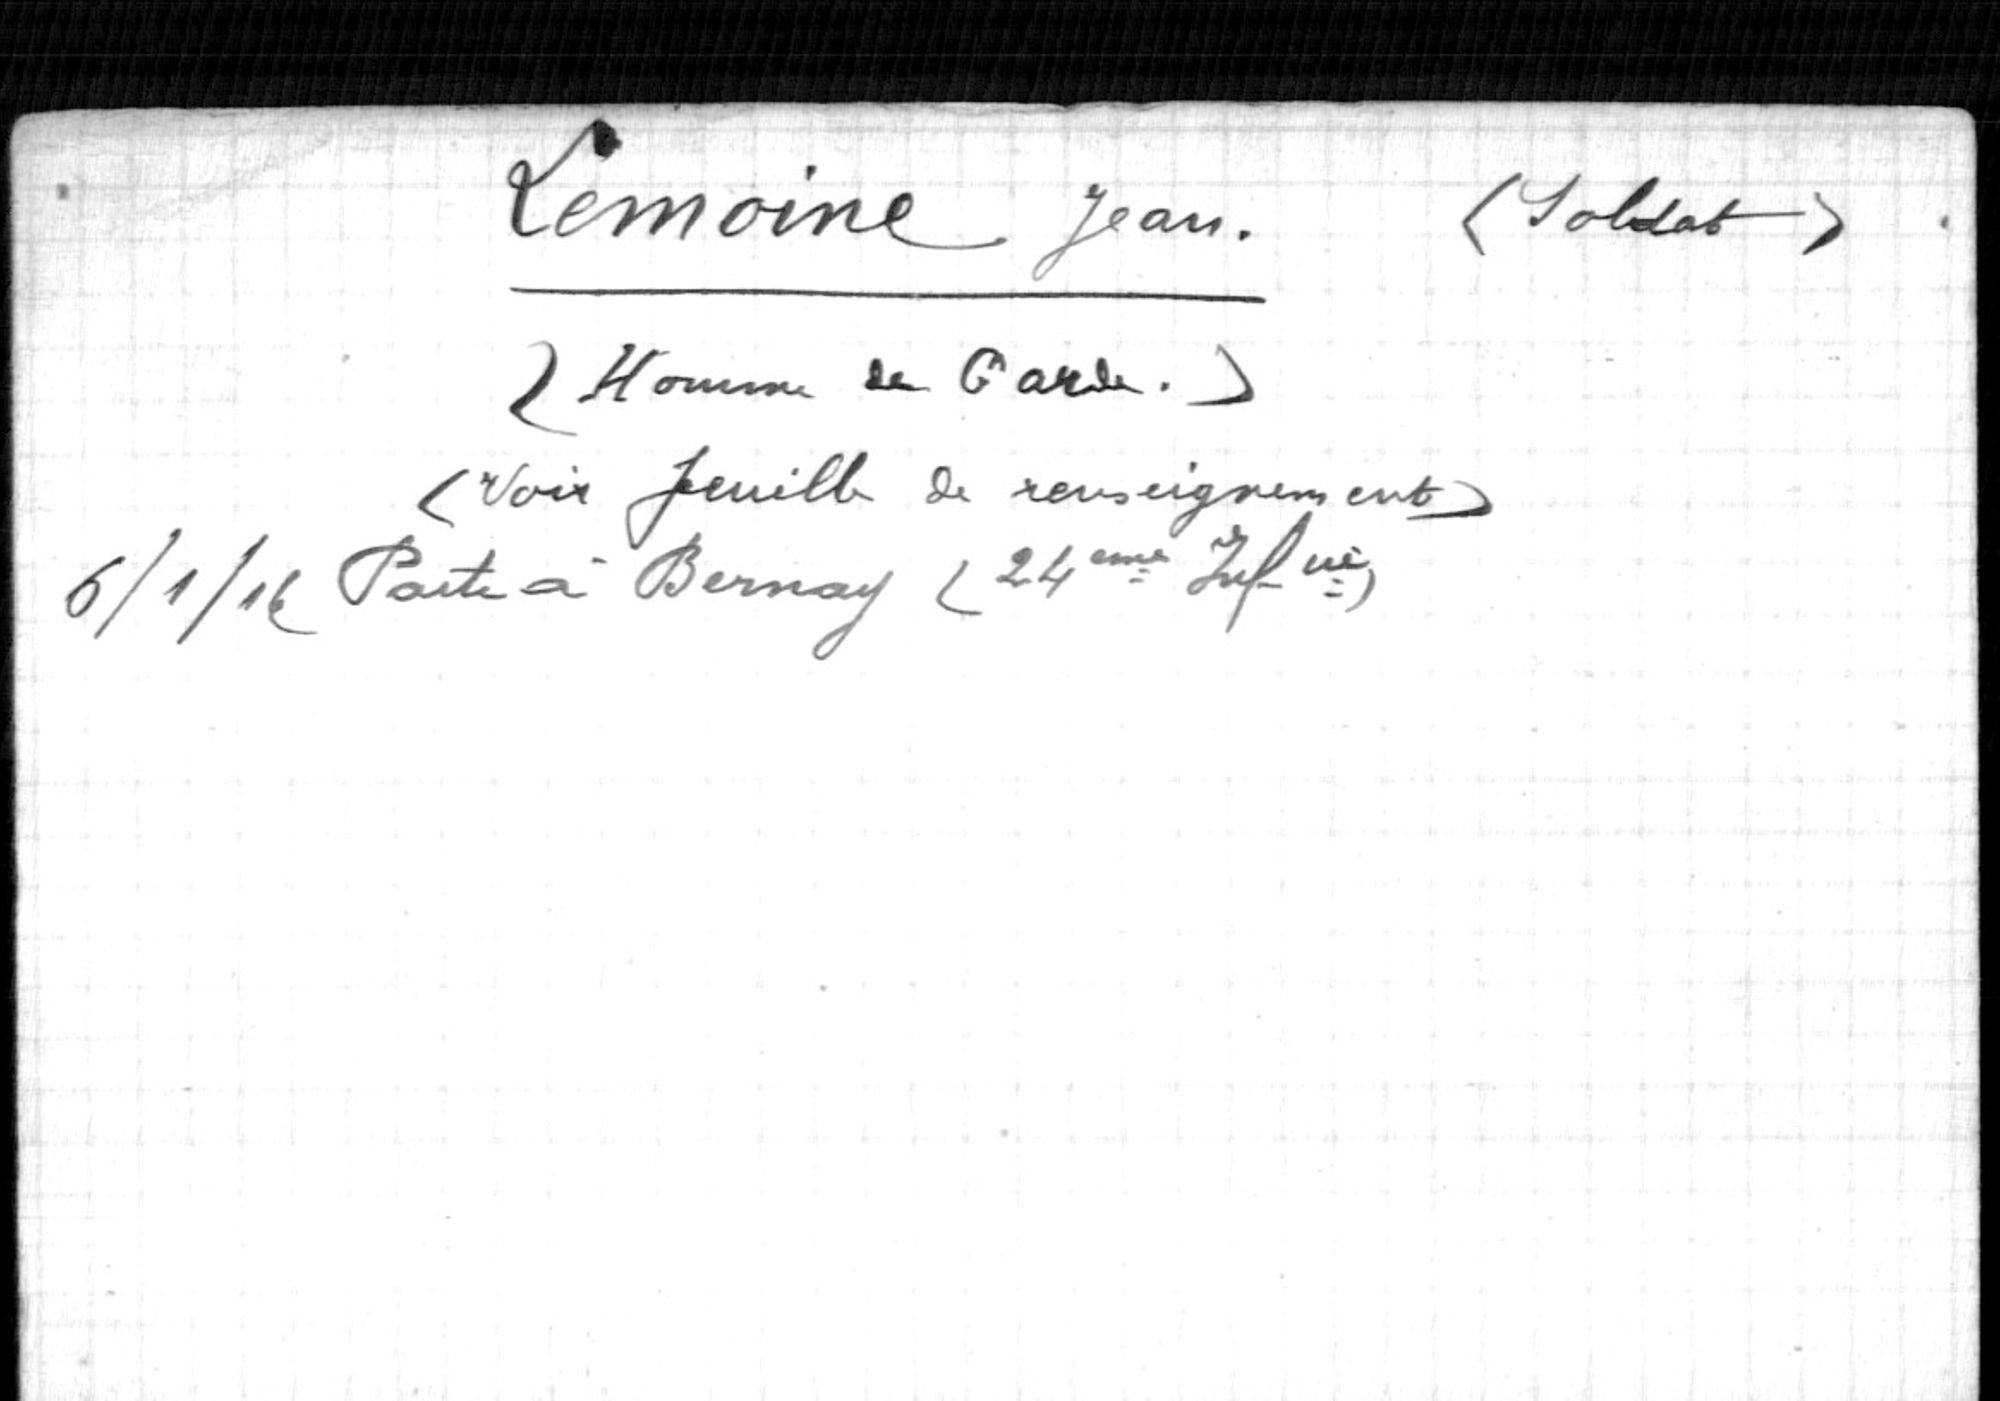 Lemoine Jean. (Soldat)
(Homme de Garde.)
(Voir feuille de renseignement)
6/1/16 Parti à Bernay (24eme Infrie)